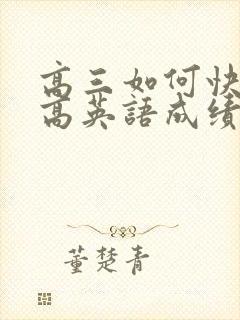 高三如何快
高英語成績
董楚青